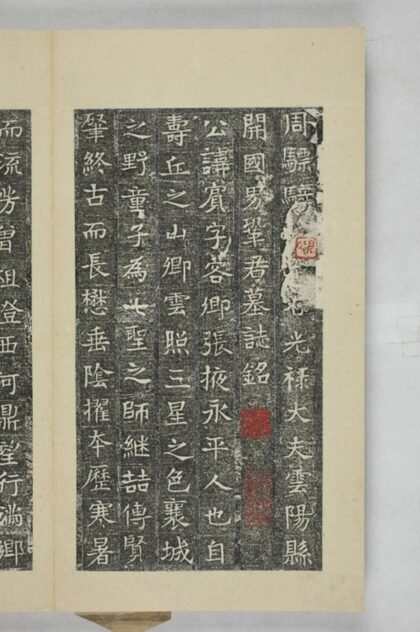 周驃騎光祿大夫雲陽縣
開國男鞏君墓誌銘
公諱賓字客卿張掖永平人也自
壽丘之山卿雲照三星之色襄城
之野童子為七聖之師繼喆傳賢
肇終古而長懋垂陰擢本歷寒暑
而流芳曾祖澄西河鼎望行滿鄉